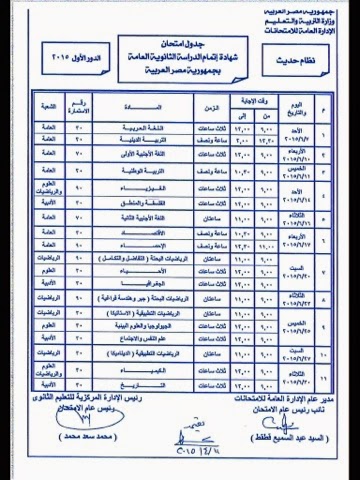 جمهورية مصر العربية
وزارة التربية والتعليم
الإدارة العامة للامتحانات
نظام حديث
جدول امتحان
شهادة إتمام الدراسة الثانوية العامة
بجمهورية مصر العربية
الدور الأول ٢٠١٥
م اليوم والتاريخ وقت الإجابة الزمن المادة رقم الاستمارة الشعبة
من إلى
١ الأحد ٢٠١٥/٦/٧ ٩,٠٠ ١٢,٠٠ ثلاث ساعات اللغة العربية العامة
١٢,٣٠ ٢,٠٠ ساعة ونصف التربية الدينية العامة
٢ الأربعاء ٢٠١٥/٦/١٠ ٩,٠٠ ١٢,٠٠ ثلاث ساعات اللغة الأجنبية الأولى ٧٠ العامة
٣ الخميس ٢٠١٥/٦/١١ ٩,٠٠ ١٠,٣٠ ساعة ونصف التربية الوطنية ٢٠ العامة
٤ الأحد ٢٠١٥/٦/١٤ ٩,٠٠ ١٢,٠٠ ثلاث ساعات الفيزياء ٩٠ العلوم والرياضيات
٩,٠٠ ١٢,٠٠ ثلاث ساعات الفلسفة والمنطق الأدبية
٥ الثلاثاء ٢٠١٥/٦/١٦ ٩,٠٠ ١١,٠٠ ساعتان اللغة الأجنبية الثانية ٧٠ العامة
٦ الأربعاء ٢٠١٥/٦/١٧ ٩,٠٠ ١٠,٣٠ ساعة ونصف الاقتصاد العامة
١١,٠٠ ١٢,٣٠ ساعة ونصف الإحصاء ٩٠ العامة
٧ السبت ٢٠١٥/٦/٢٠ ٩,٠٠ ١١,٠٠ ساعتان الرياضيات البحتة ( التفاضل والتكامل ) ٩٠ الرياضيات
٩,٠٠ ١٢,٠٠ ثلاث ساعات الأحياء العلوم
٩,٠٠ ١٢,٠٠ ثلاث ساعات الجغرافيا الأدبية
٨ الثلاثاء ٢٠١٥/٦/٢٣ ٩,٠٠ ١١,٠٠ ساعتان الرياضيات البحتة ( جبر وهندسة فراغية ) ٩٠ الرياضيات
٩ الخميس ٢٠١٥/٦/٢٥ ٩,٠٠ ١١,٠٠ ساعتان الرياضيات التطبيقية ( الاستاتيكا ) الرياضيات
٩,٠٠ ١٢,٠٠ ثلاث ساعات الجيولوجيا والعلوم البيئية العلوم
٩,٠٠ ١٢,٠٠ ثلاث ساعات علم النفس والاجتماع الأدبية
١٠ السبت ٢٠١٥/٦/٢٧ ٩,٠٠ ١١,٠٠ ساعتان الرياضيات التطبيقية ( الديناميكا ) الرياضيات
١١ الثلاثاء ٢٠١٥/٦/٣٠ ٩,٠٠ ١٢,٠٠ ثلاث ساعات الكيمياء العلوم والرياضيات
٩,٠٠ ١٢,٠٠ ثلاث ساعات التاريخ الأدبية
مدير عام الإدارة العامة للامتحانات
نائب رئيس عام الامتحان
( السيد عبد السميع قطقط )
رئيس الإدارة المركزية للتعليم الثانوى
رئيس عام الامتحان
( محمد سعد محمد )